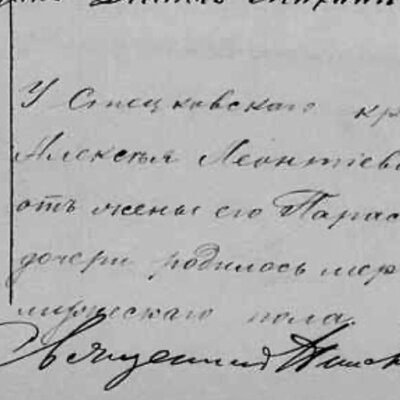 У Стецковскаго кр
Алексѣя Леонтіев
отъ жены его Парас
дочери родилось мер
мужескаго пола.
Священникъ